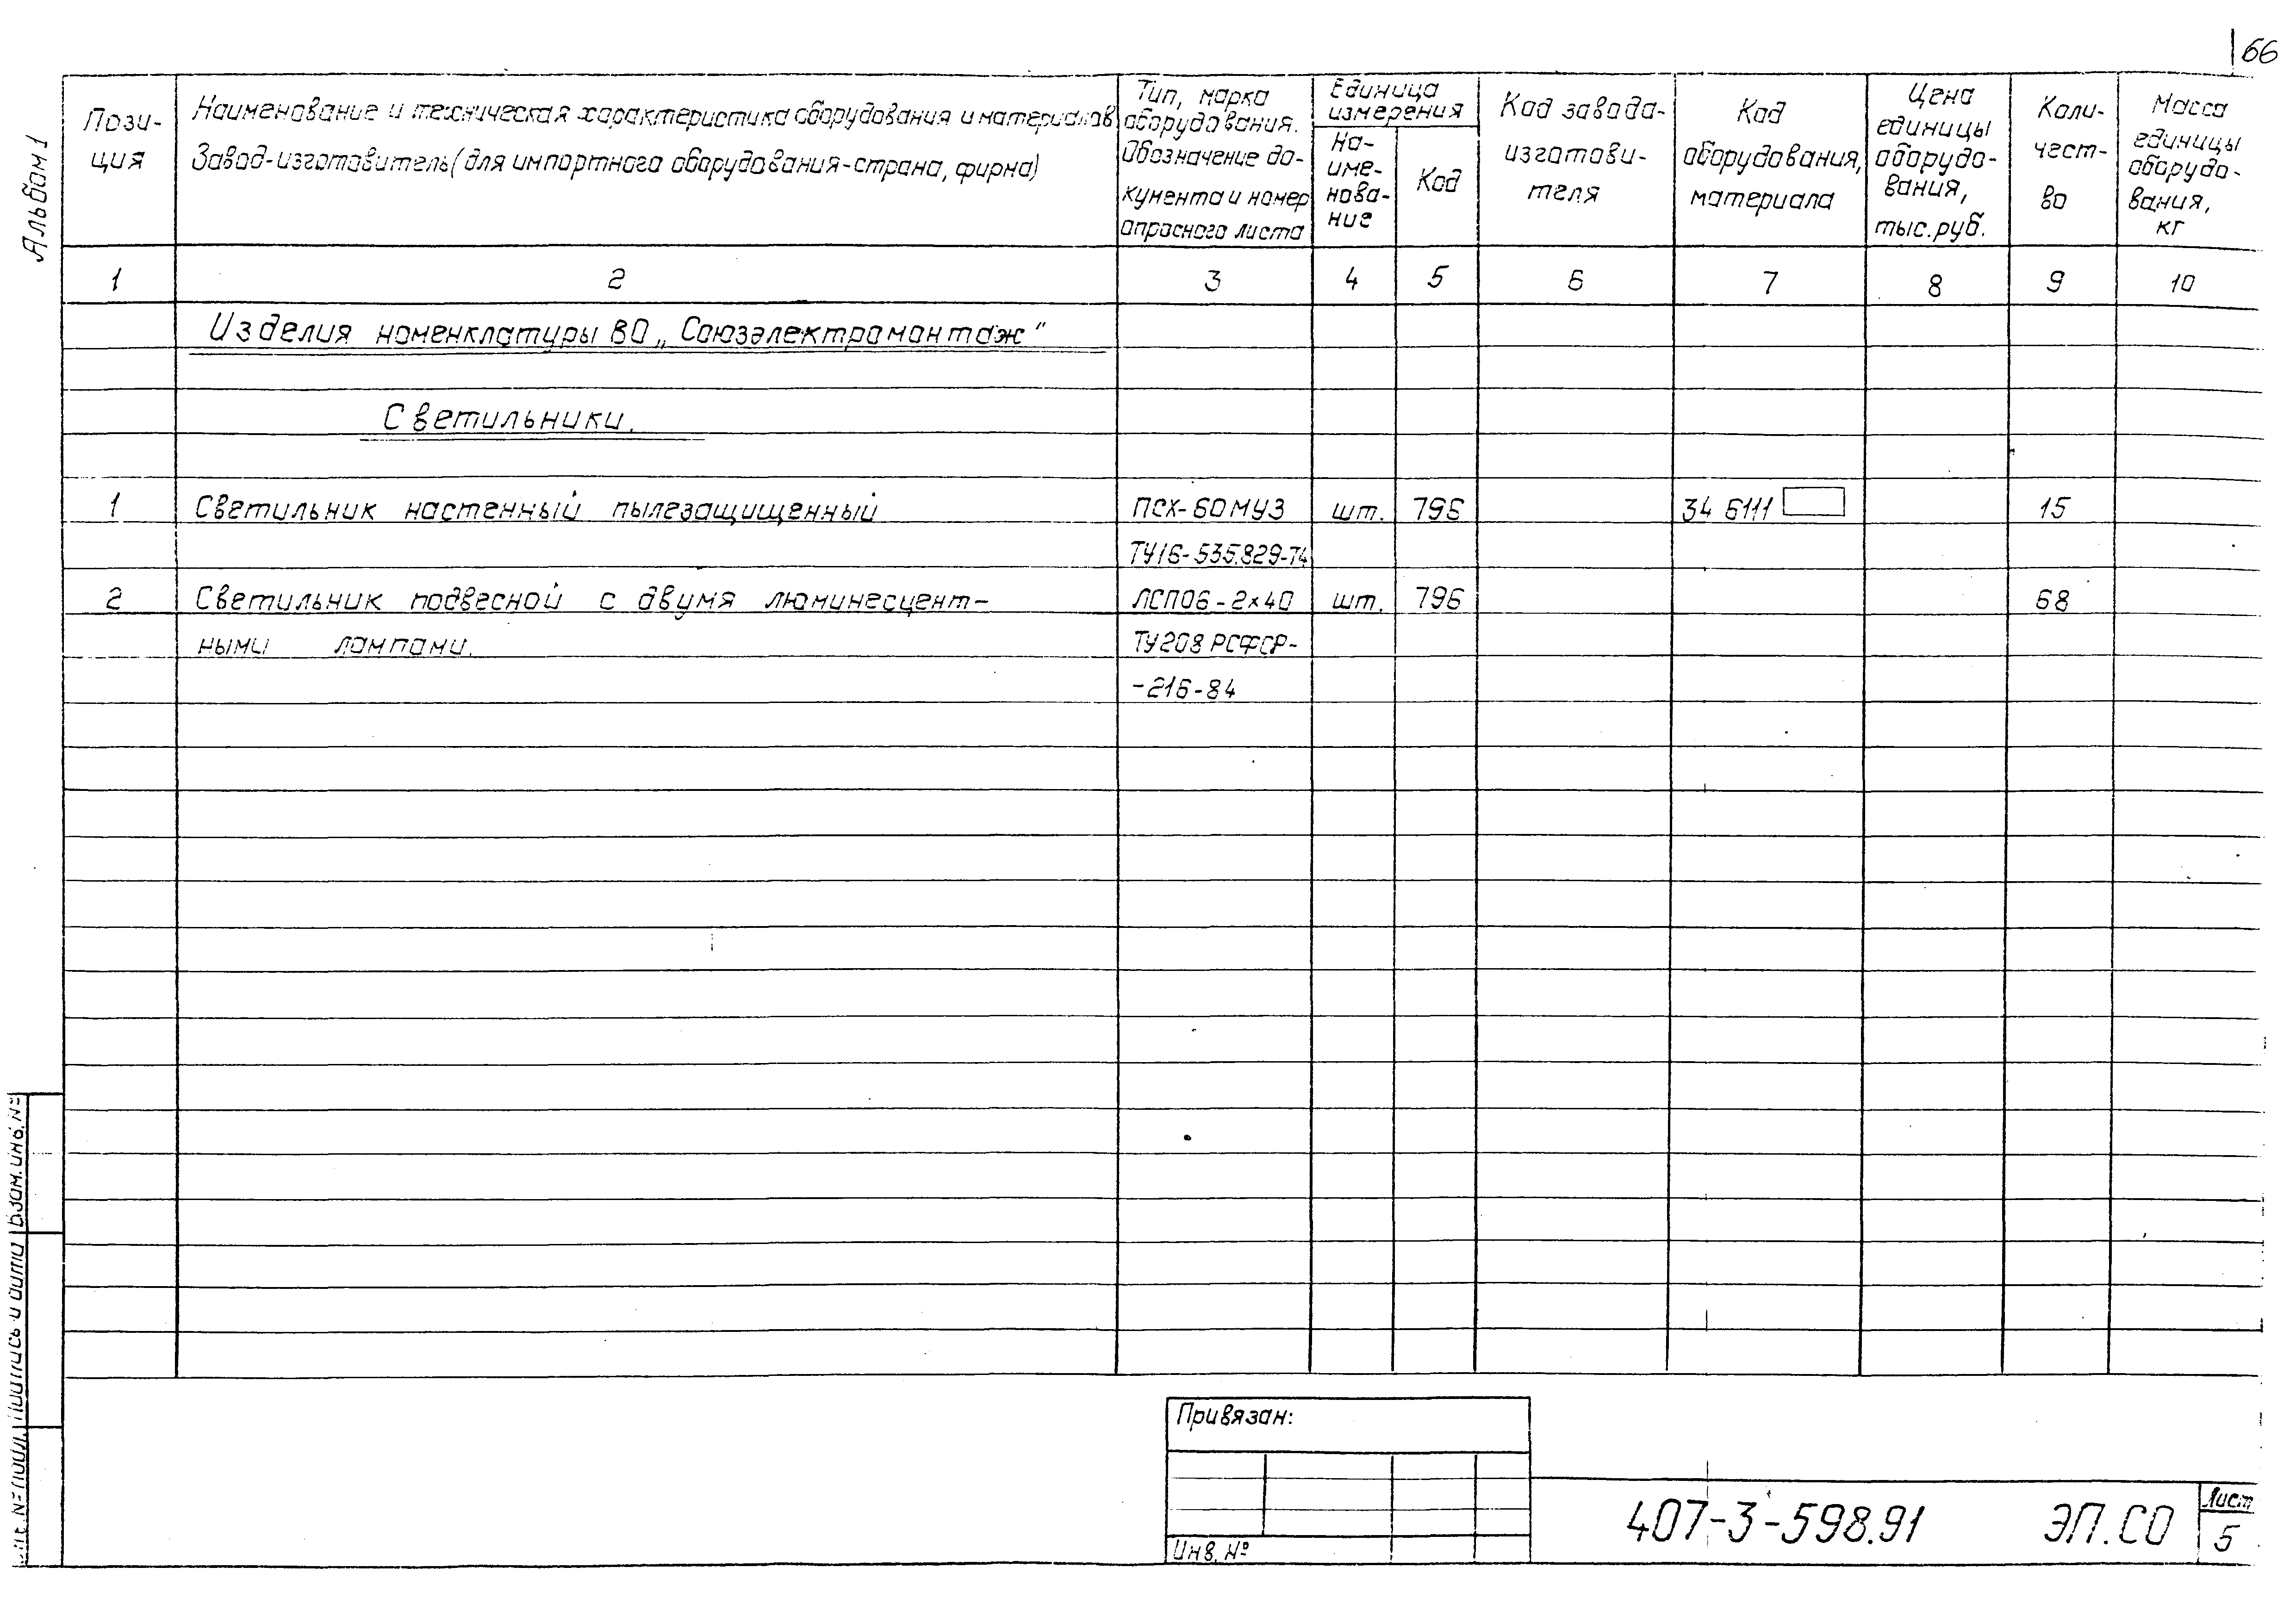 66
Альбом 1
Пози-
ция
Наименование и техническая характеристика оборудования и материалов
Завод-изготовитель (для импортного оборудования-страна, фирма)
Тип, марка
оборудования.
Обозначение до-
кумента и номер
опросного листа
Единица
измерения
На-
име-
нова-
ние
Код
Код завода-
изготови-
теля
Код
оборудования,
материала
Цена
единицы
оборудо-
вания,
тыс. руб.
Коли-
чест-
во
Масса
единицы
оборудо-
вания,
кг
1 2 3 4 5 6 7 8 9 10
Изделия номенклатуры ВО „Союзэлектромонтаж"
Светильники.
1 Светильник настенный пылезащищенный ПСХ-60МУЗ шт. 796 34 6111 15
ТУ16-535.829-74
2 Светильник подвесной с двумя люминесцент- ЛСП06-2х40 шт. 796 68
ными лампами. ТУ208 РСФСР-
-216-84
Взам. инв. №
Подпись и дата
Инв. № подл.
Привязан:
Инв. №
407-3-598.91 ЭП.СО
Лист
5